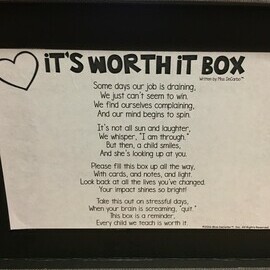 iT'S WORTH iT BOX
Written by Miss DeCarbo™
Some days our job is draining,
We just can't seem to win.
We find ourselves complaining,
And our mind begins to spin.
It's not all sun and laughter,
We whisper, "I am through."
But then, a child smiles,
And she's looking up at you.
Please fill this box up all the way,
With cards, and notes, and light!
Look back at all the lives you've changed.
Your impact shines so bright!
Take this out on stressful days,
When your brain is screaming, "quit."
This box is a reminder,
Every child we teach is worth it.